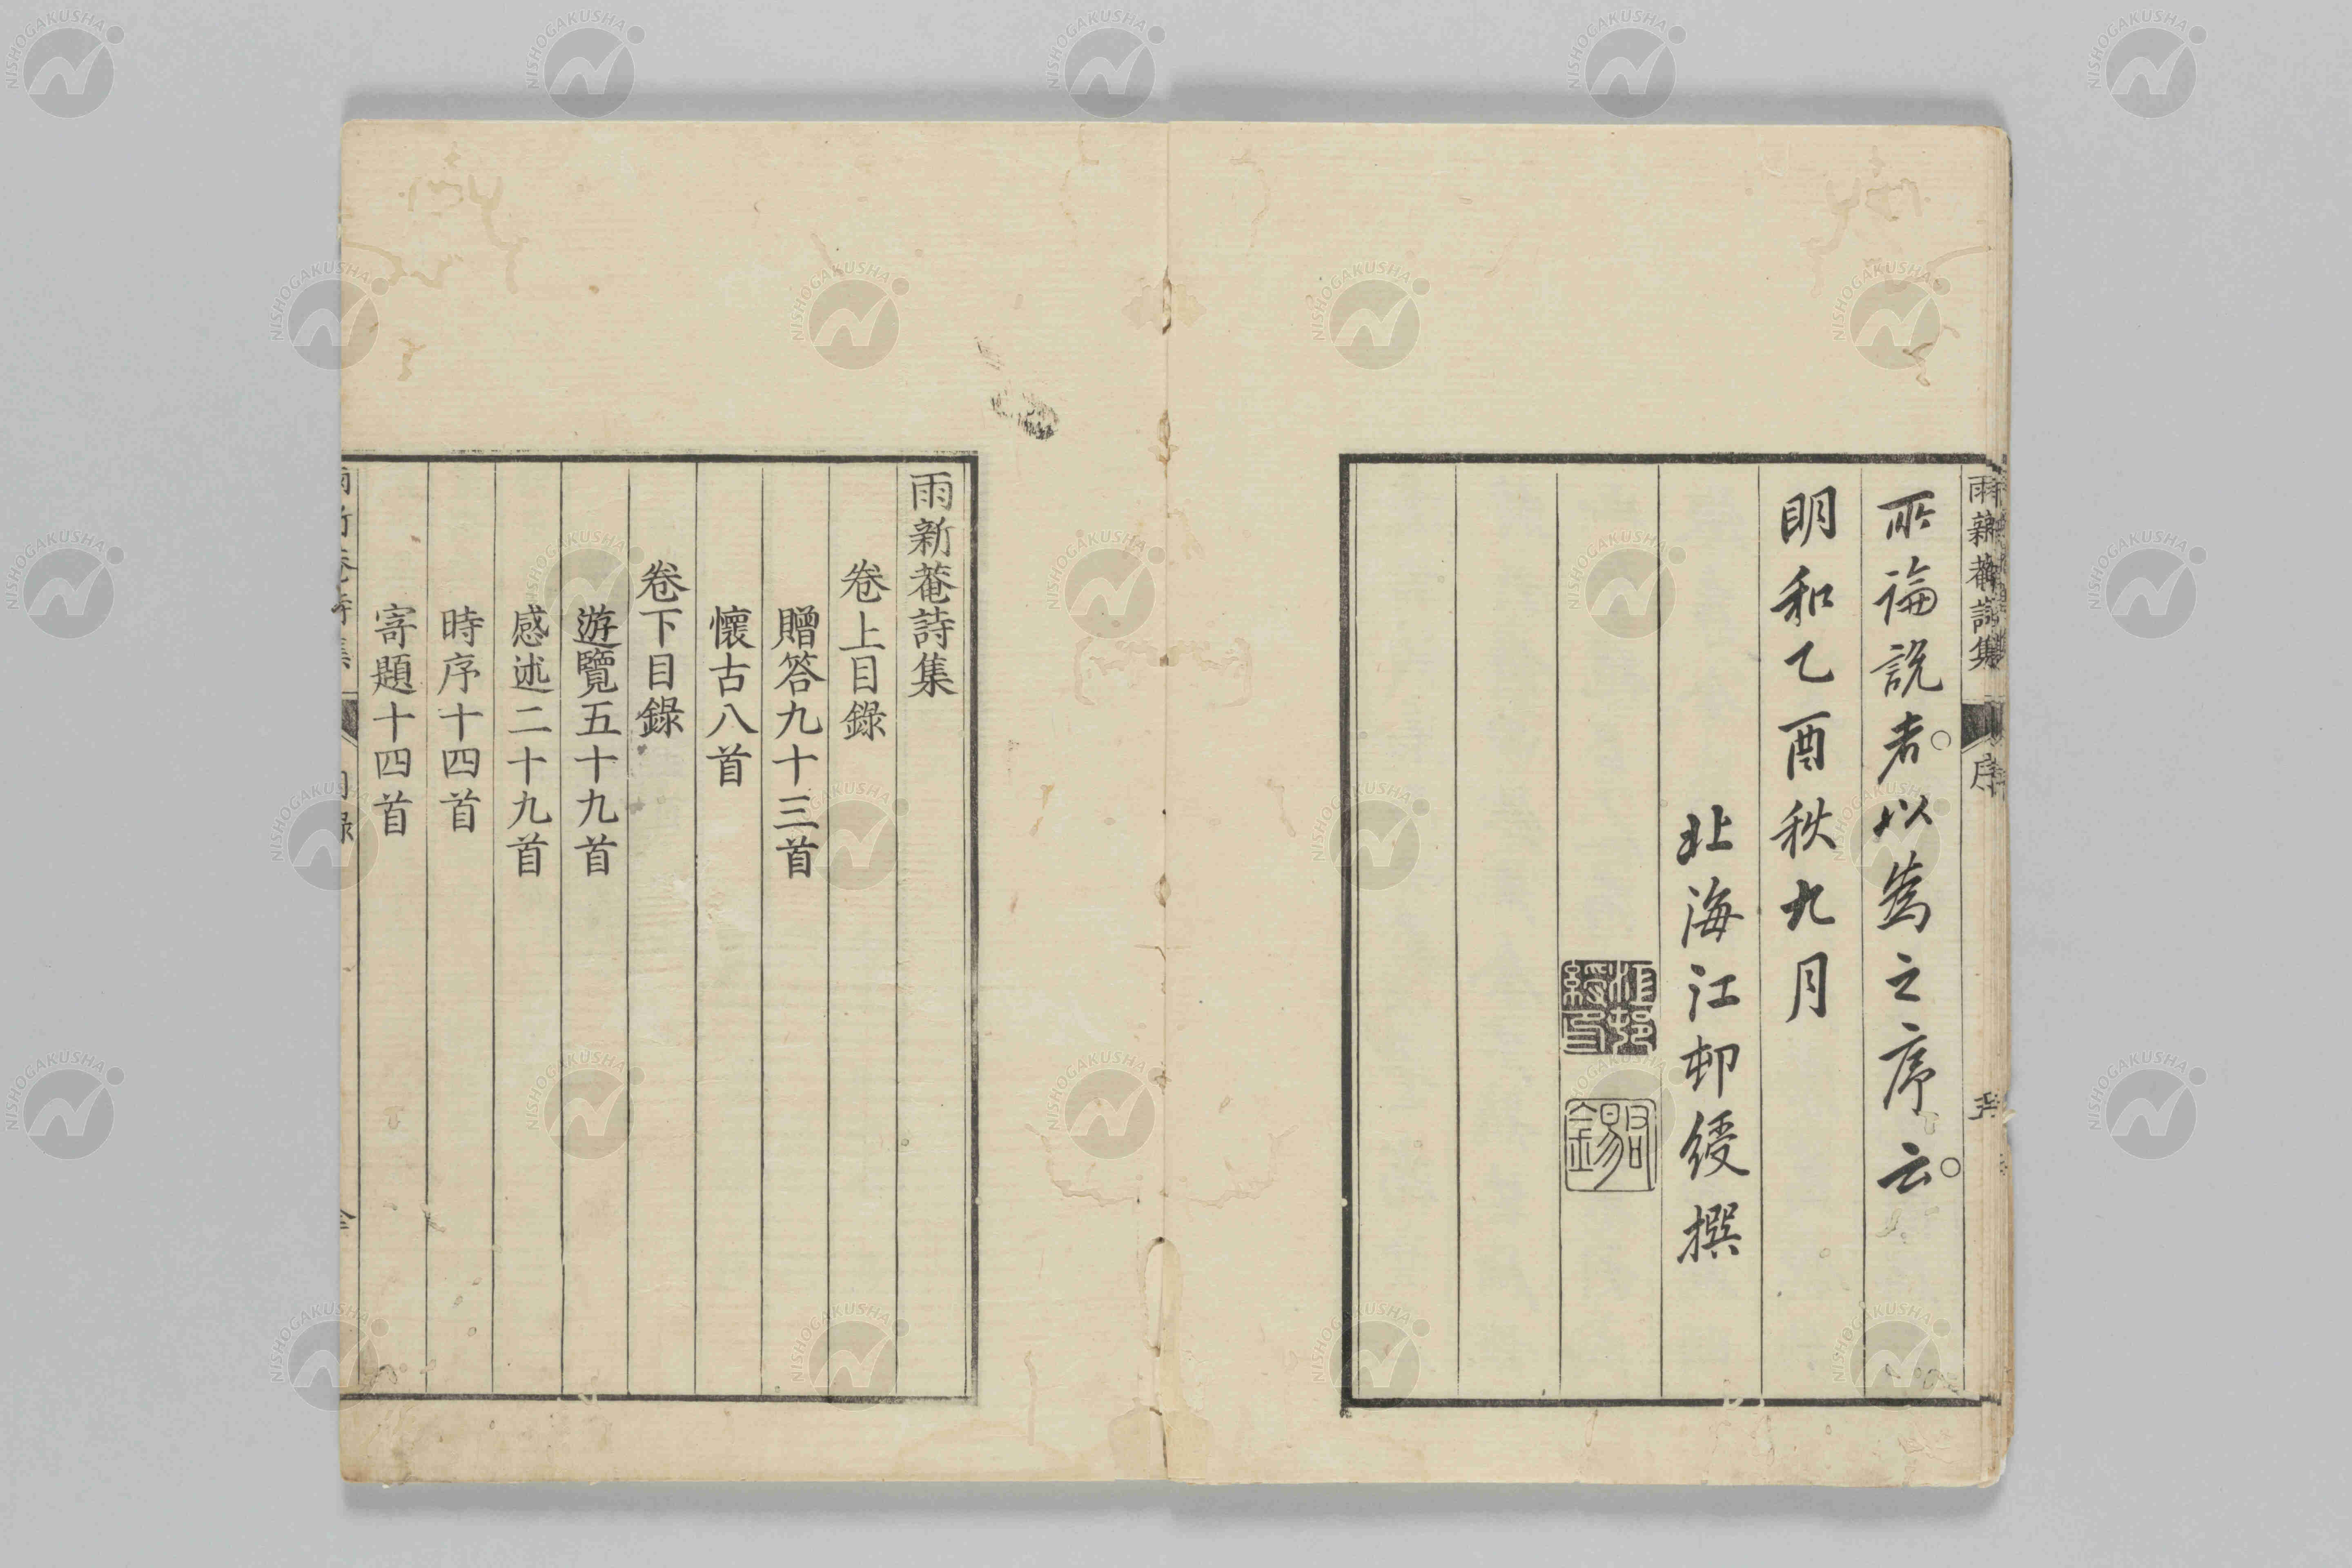 雨新菴詩集 序 五
所論説者。以為之序云。
明和乙酉秋九月
北海江邨綬撰
江邨綬印
君錫
雨新菴詩集
卷上目錄
贈答九十三首
懷古八首
卷下目錄
遊覽五十九首
感述二十九首
時序十四首
寄題十四首
NISHOGAKUSHA